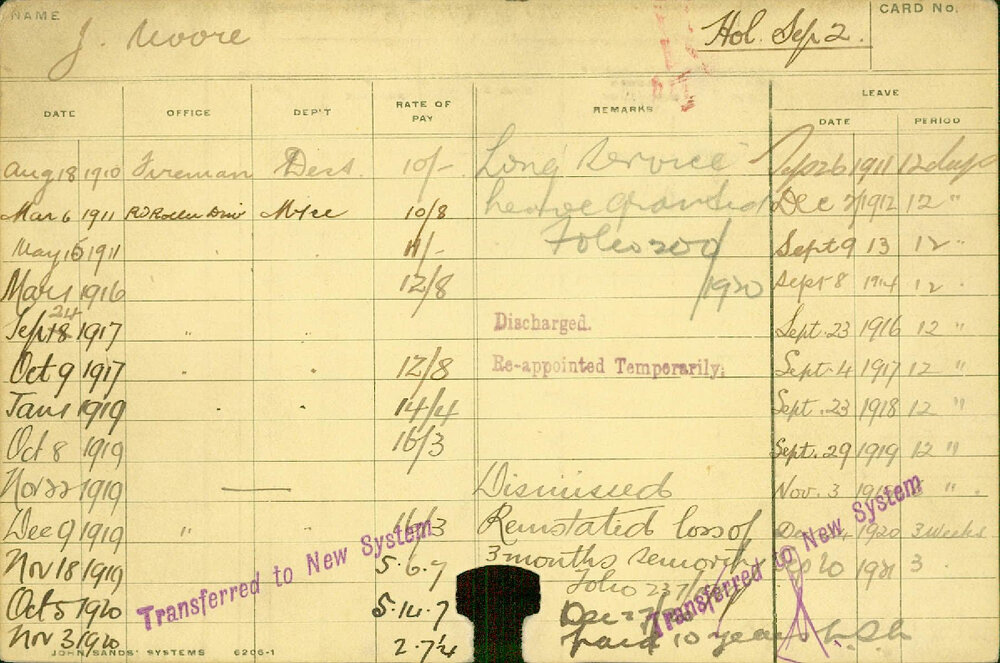 NAME J. Moore Hol. Sep 2. CARD No.
DATE OFFICE DEP'T RATE OF PAY REMARKS LEAVE
DATE PERIOD
Aug 18 1910 Fireman Dest. 10/- Long Service Sep 26 1911 12 days
Mar 6 1911 10/8 Leave Granted Dec 1912 12 "
May 15 1911 11/- Folio 200 Sept 9 13 12 "
Mar 1 1916 12/8 /1920 Sept 8 1914 12 "
24
Sept 18 1917 " Discharged. Sept. 23 1916 12 "
Oct 9 1917 " " 12/8 Re-appointed Temporarily. Sept. 4 1917 12 "
Jan 1 1919 " " 14/4 Sept. 23 1918 12 "
Oct 8 1919 16/3 Sept. 29 1919 12 "
Nov 22 1919 — Dismissed Nov. 3 " "
Dec 9 1919 " " 16/3 Reinstated loss of 1920 3 Weeks
Nov 18 1919 5.6.7 3 months Sep 20 1921 3
Folio 237
Oct 5 1920 5.14.7 Dec
Nov 3 1920 2.7¼ paid 10 years
Transferred to New System
Transferred to New System
JOHN SANDS' SYSTEMS 6206-1